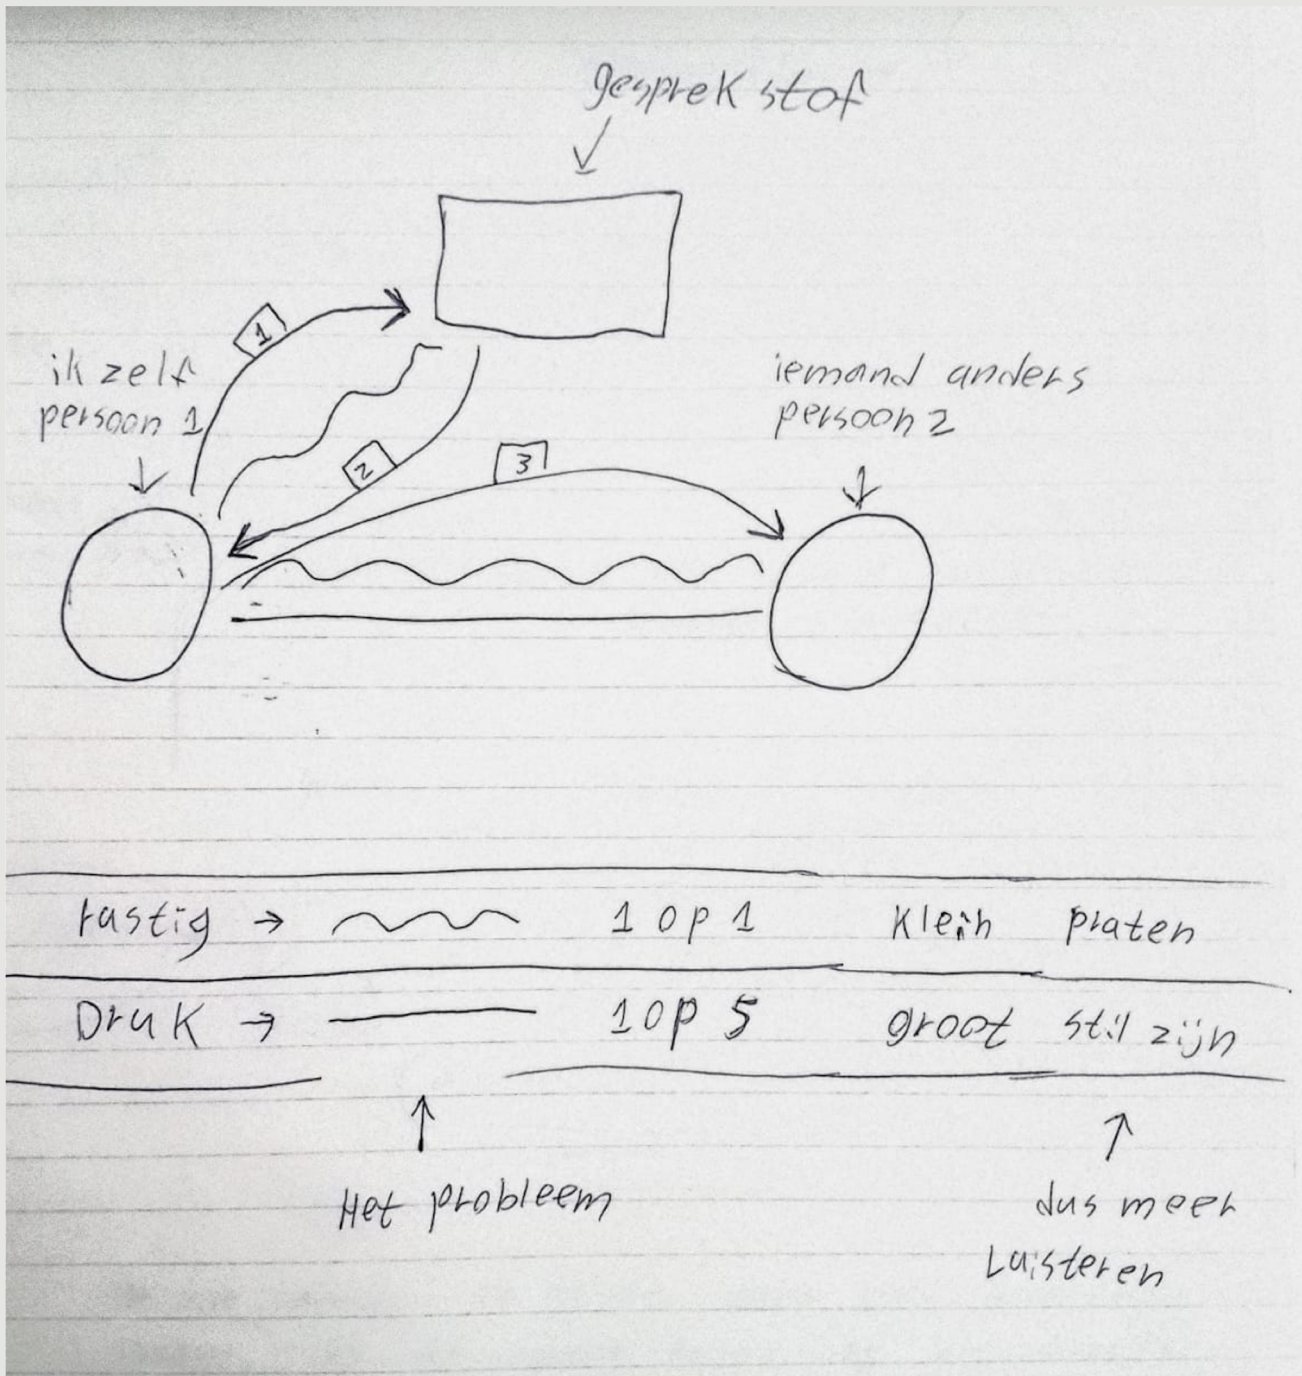 gesprek stof
1
ik zelf
persoon 1
iemand anders
persoon 2
2
3
rustig → 1 op 1 klein praten
Druk → 1 op 5 groot stil zijn
Het probleem
dus meer
Luisteren